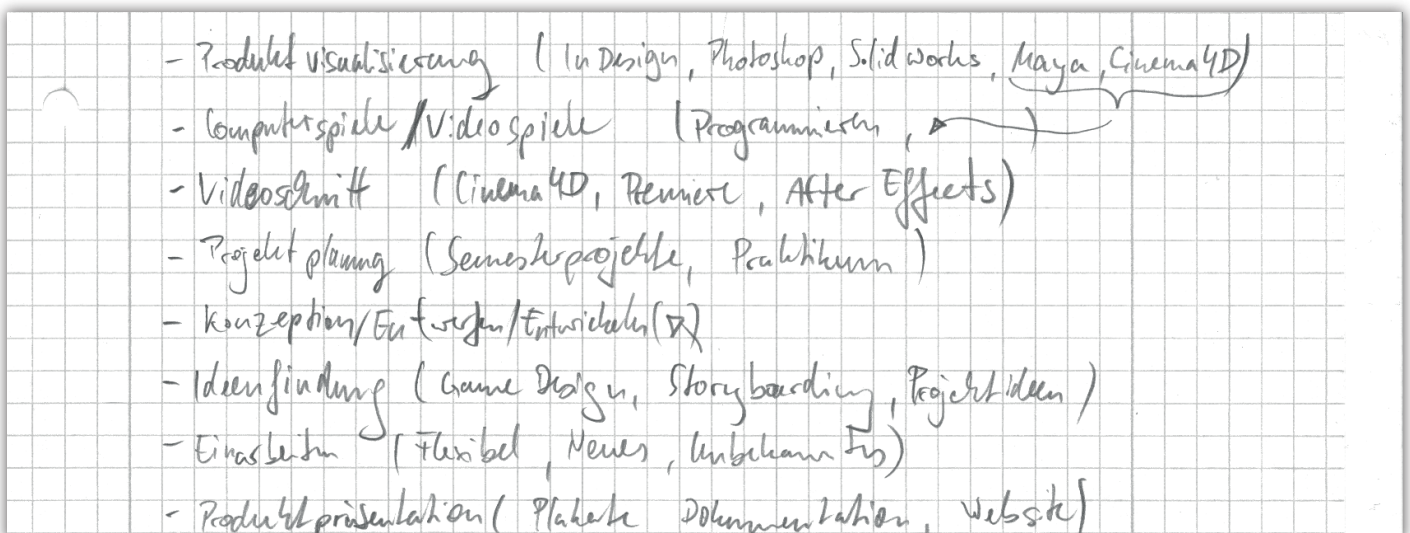 - Produktvisualisierung (InDesign, Photoshop, Solidworks, Maya, Cinema4D)
- Computerspiele/Videospiele (Programmieren, )
- Videoschnitt (Cinema4D, Premiere, After Effects)
- Projektplanung (Semesterprojekte, Praktikum)
- Konzeption/Entwerfen/Entwickeln ( )
- Ideenfindung (Game Design, Storyboarding, Projektideen)
- Einarbeiten (Flexibel, Neues, Unbekanntes)
- Produktpräsentation (Plakate Dokumentation, Website)